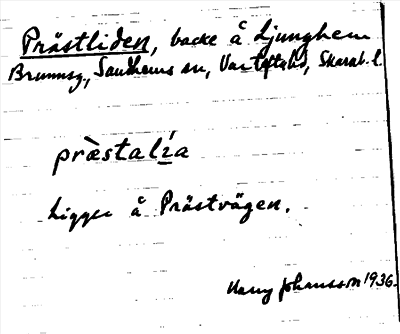 Prästliden, backe å Ljunghem
Brunnsg, Sandhems sn, Vartofta hd, Skarab. l.
prὰestalía
Ligger å Prästvägen.
Harry Johansson 1936.